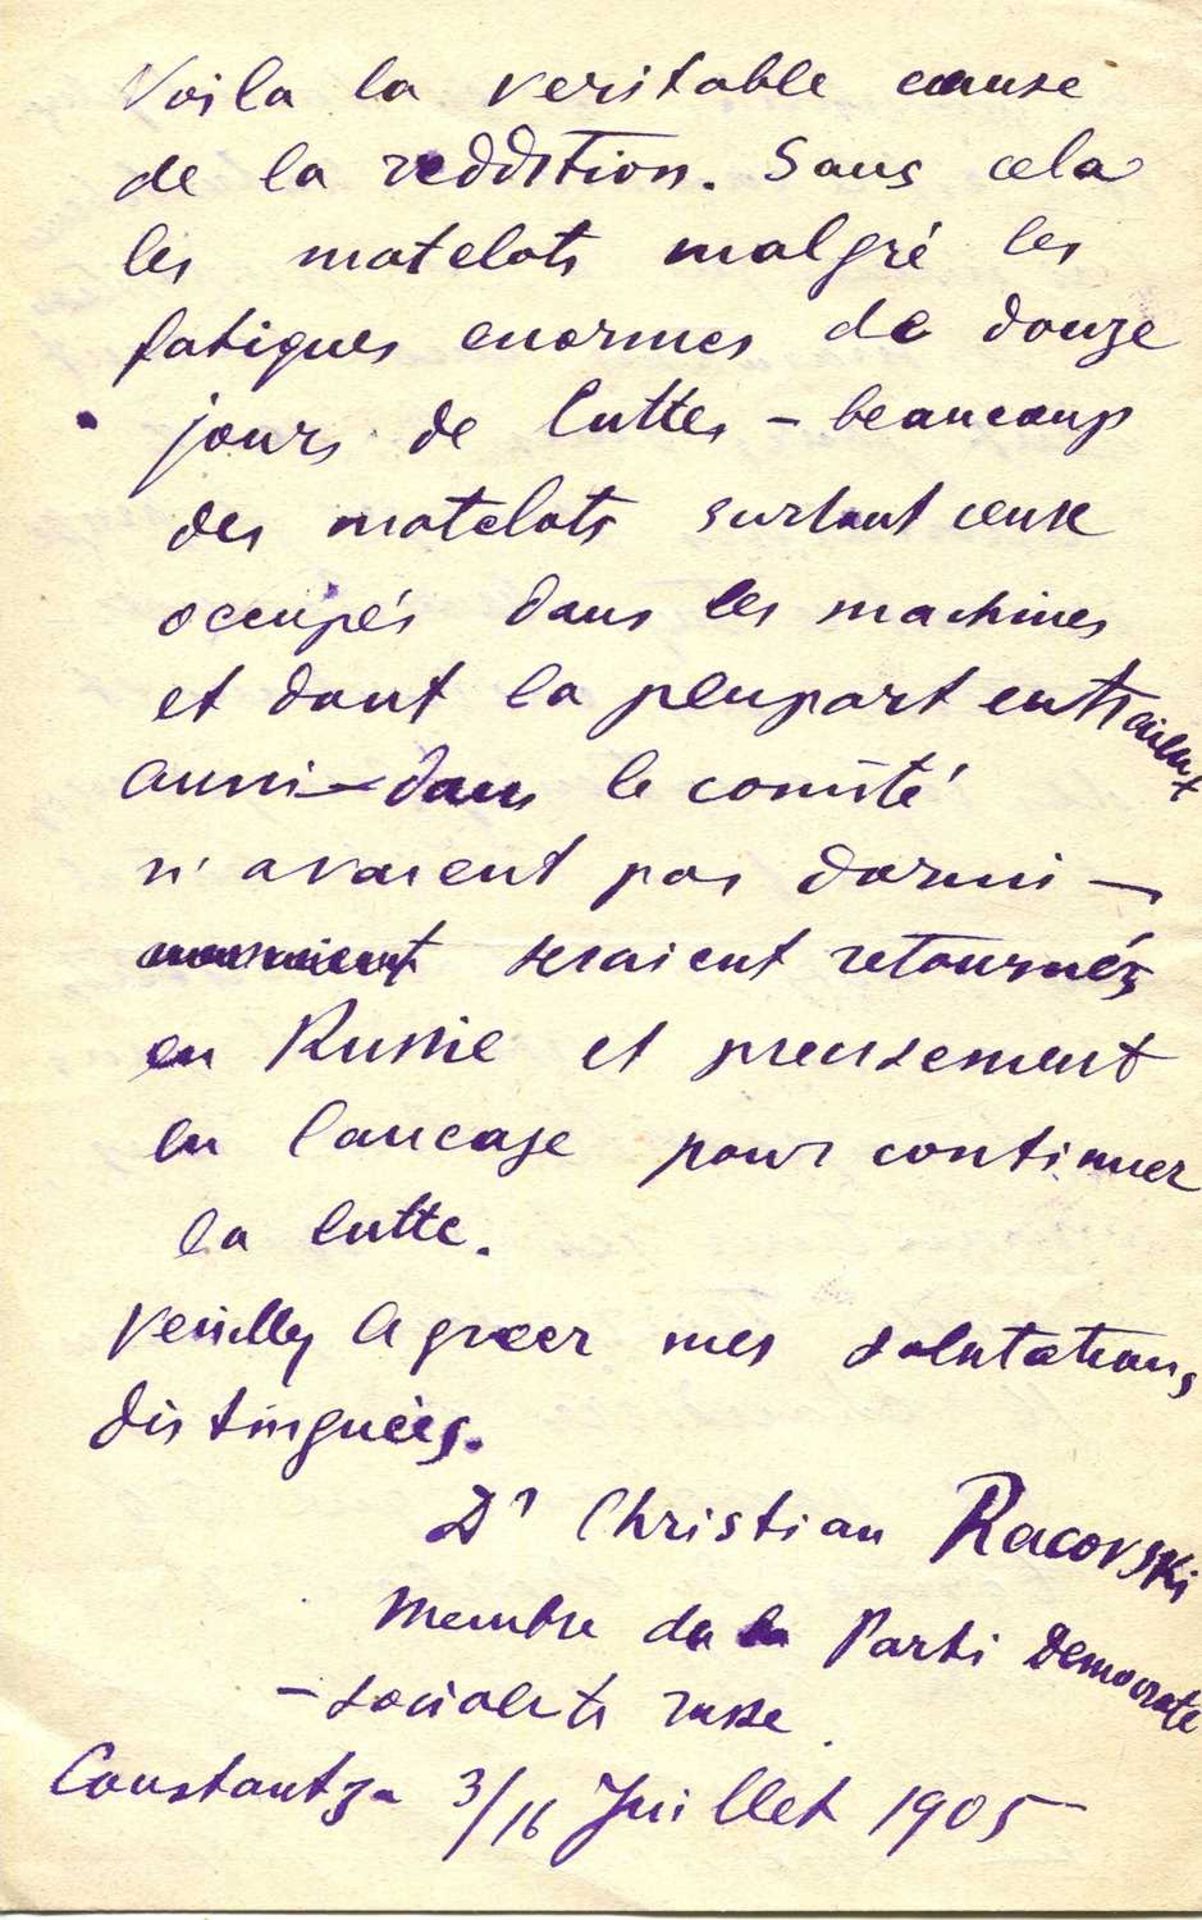 Voila la veritable cause
de la reddition. Sans cela
les matelots malgré les
fatigues enormes de douze
jours de luttes – beaucoup
des matelots surtout ceux
occupés dans les machines
et dont la plupart entraient
aussi – dans le comité
n'avaient pas dormi –
seraient retournés
en Russie et precisement
en Caucase pour continuer
la lutte.
Veuilley agreer mes salutations
distinguées.
Dr Christian Racovski
Membre du Parti Democrate
– socialiste russe.
Constantza 3/16 Juillet 1905